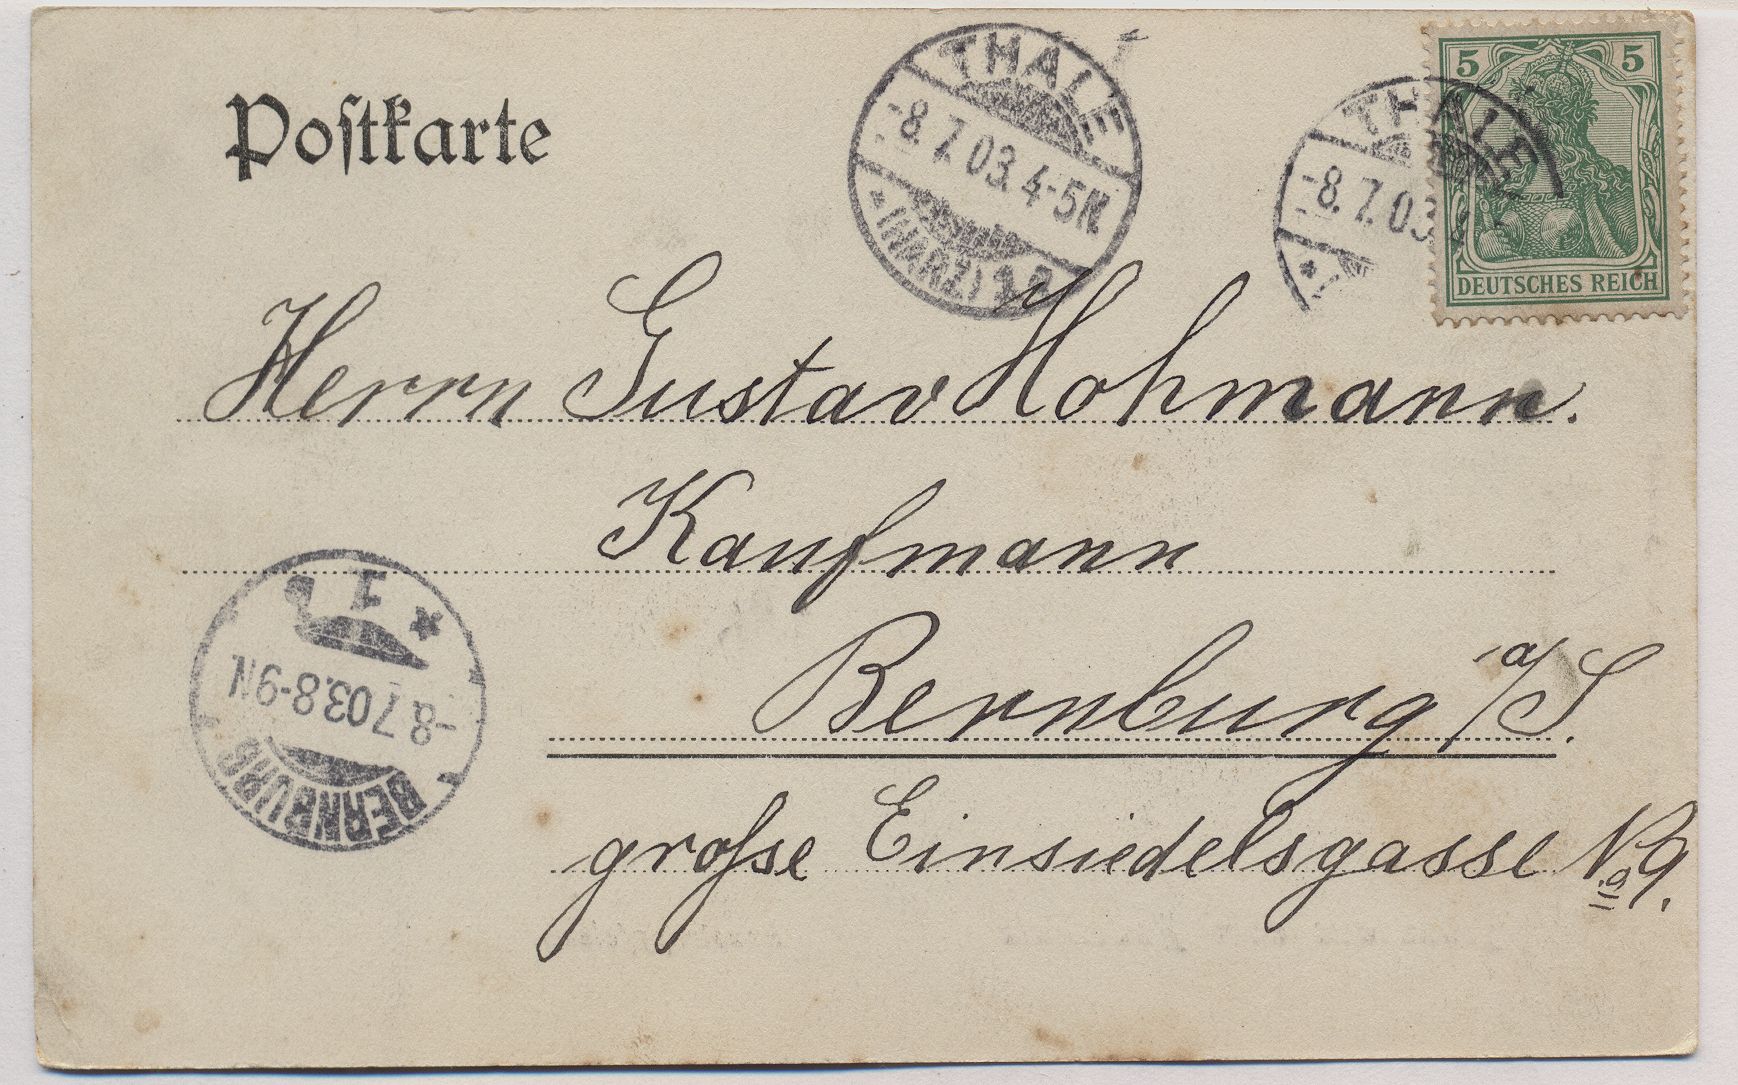 Postkarte
THALE
-8.7.03.4-5N.
*(HARZ)
THALE
-8.7.03.4
5 5
DEUTSCHES REICH
Herrn Gustav Hohmann.
Kaufmann
Bernburg a/S.
grosse Einsiedelsgasse No 9.
BERNBURG
-8.7.03.8-9N.
* 1 b